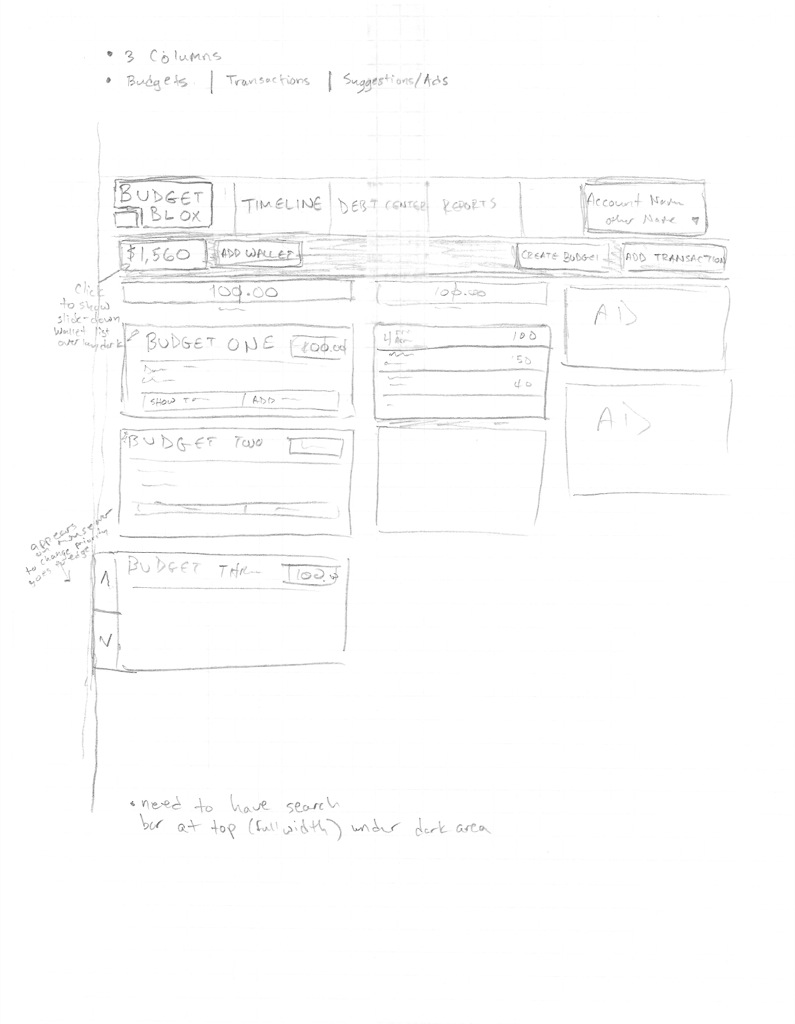 • 3 Columns
• Budgets | Transactions | Suggestions/Ads
BUDGET
BLOX
TIMELINE
DEBT CENTER
REPORTS
Account Name
other Name
$1,560
ADD WALLET
CREATE BUDGET
ADD TRANSACTION
Click
to show
slide-down
wallet list
over lay dark
100.00
100.00
AD
BUDGET ONE
100.00
SHOW
ADD
100
50
40
AD
BUDGET TWO
appears
on mouseover
to change priority
BUDGET
100.
• need to have search
bar at top (full width) under dark area